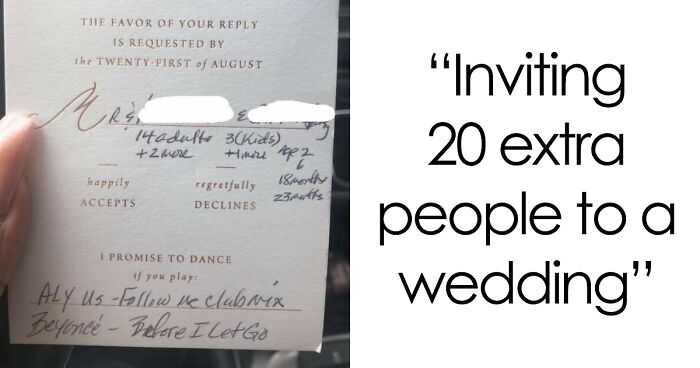 THE FAVOR OF YOUR REPLY
IS REQUESTED BY
the TWENTY-FIRST of AUGUST
M R &
14 adults 3 (kids)
+2 more +1 more Age 2
6
18 months
23 months
happily regretfully
ACCEPTS DECLINES
I PROMISE TO DANCE
if you play:
ALY Us - Follow Me club mix
Beyoncé - Before I Let Go
“Inviting
20 extra
people to a
wedding”